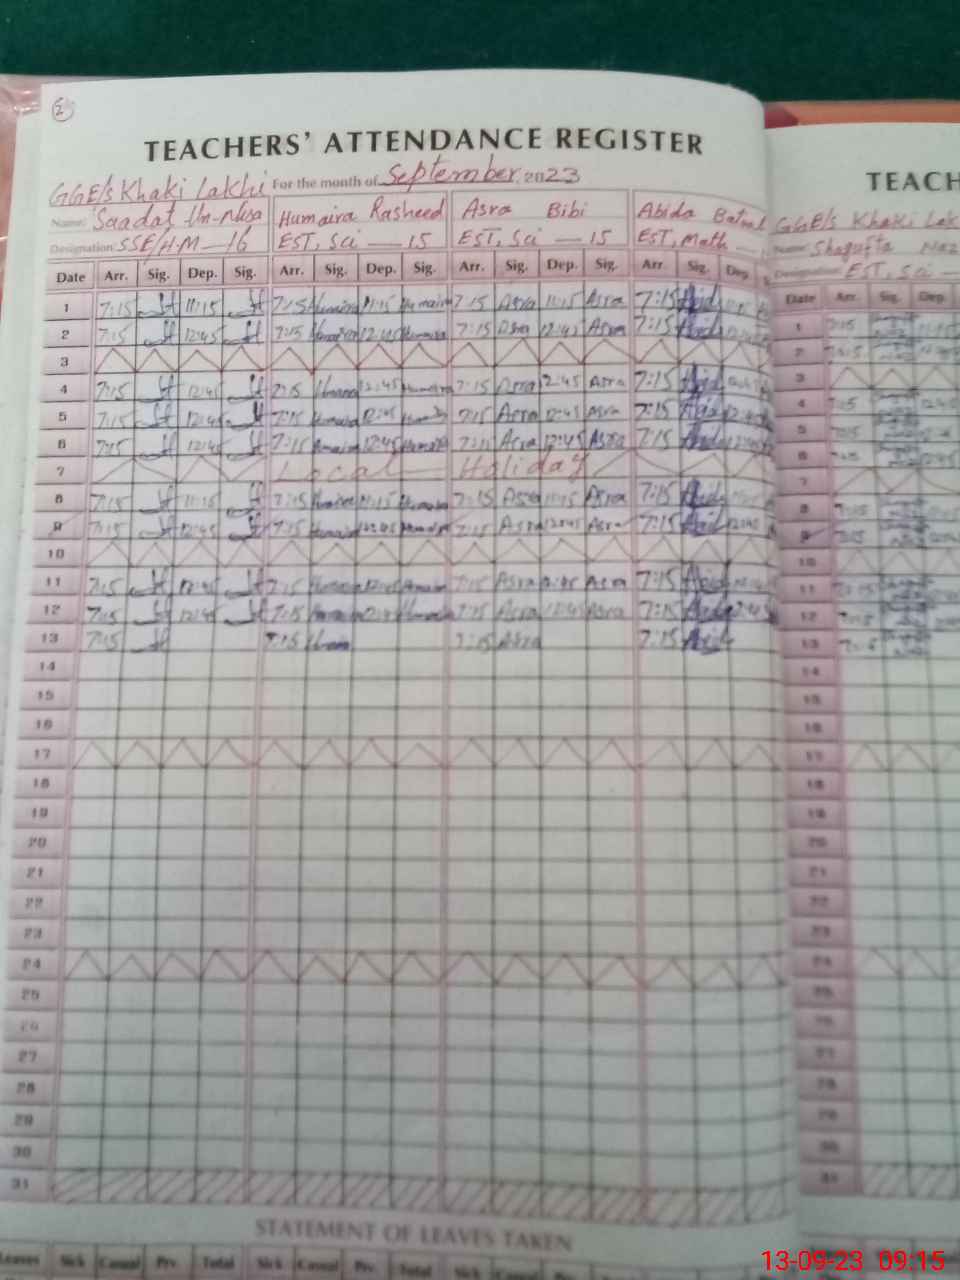 2
TEACHERS' ATTENDANCE REGISTER
GGE/s Khaki Lakhi For the month of September 2023
Name: Saadat Un-Nisa Humaira Rasheed Asra Bibi Abida Batool
Designation SSE/HM-16 EST, Sci - 15 EST, Sci - 15 EST, Math -
Date Arr. Sig. Dep. Sig. Arr. Sig. Dep. Sig. Arr. Sig. Dep. Sig. Arr. Sig. Dep. S
1 7:15 11:15 7:15 Humaira 11:15 Humaira 7:15 Asra 11:15 Asra 7:15 Abid
2 7:15 12:45 7:15 Humaira 12:45 Humaira 7:15 Asra 12:45 Asra 7:15 Abid
3
4 7:15 12:45 7:15 12:45 Humaira 7:15 Asra 12:45 Asra 7:15 Abid
5 7:15 12:45 7:15 Humaira 12:45 7:15 Asra 12:45 Asra 7:15 12:45
6 7:15 12:45 7:15 Humaira 12:45 Humaira 7:15 Asra 12:45 Asra 7:15 Abid 12:45
7 Local Holiday
8 7:15 11:15 7:15 Humaira 11:15 Humaira 7:15 Asra 11:15 Asra 7:15 Abid
9 7:15 12:45 7:15 Humaira 12:45 Humaira 7:15 Asra 12:45 Asra 7:15 Abid 12:45
10
11 7:15 12:45 7:15 Humaira 12:45 Humaira 7:15 Asra 12:45 Asra 7:15 Abid
12 7:15 12:45 7:15 Humaira 12:45 Humaira 7:15 Asra 12:45 Asra 7:15 Abid 12:45
13 7:15 7:15 7:15 Asra 7:15 Abid
14
15
16
17
18
19
20
21
22
23
24
25
26
27
28
29
30
31
STATEMENT OF LEAVES TAKEN
Leaves Sick Casual Prv. Total Sick Casual Prv. Total Sick Casual
TEACH
GGE/s Khaki Lak
Name: Shagufta Naz
Designation: EST, Sci -
Date Arr. Sig. Dep.
1 7:15
2 7:15
3
4 7:15 12:45
5 7:15
6 7:15 12:45
7
8 7:15
9 7:15
10
11 7:15
12 7:15
13 7:15
14
15
16
17
18
19
20
21
22
23
24
25
26
27
28
29
30
31
13-09-23 09:15